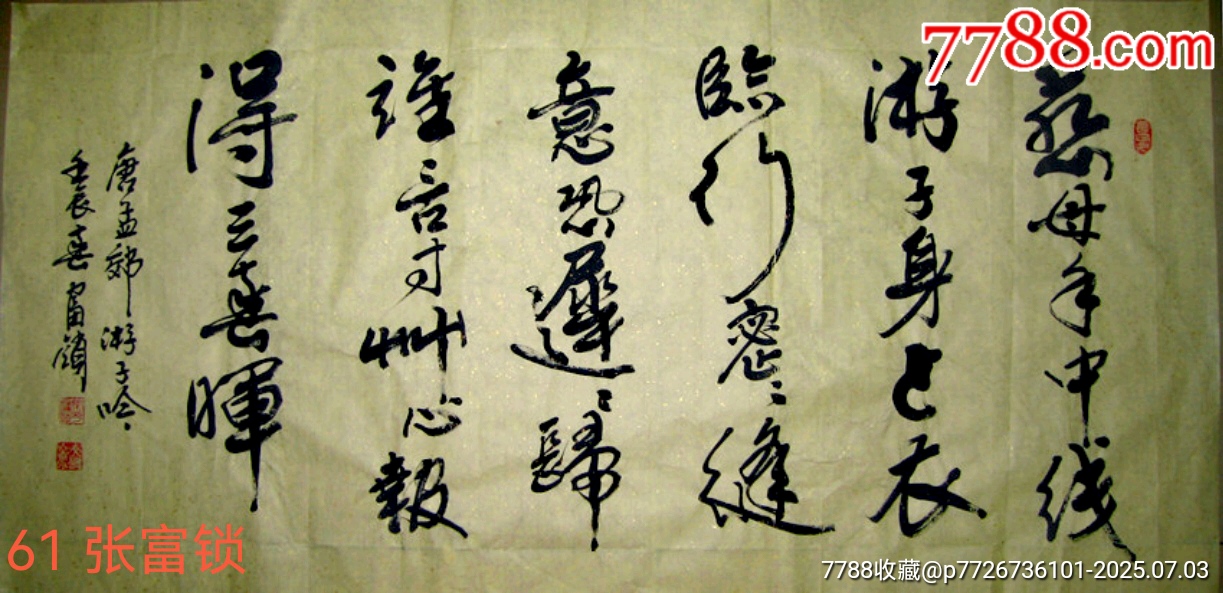 7788.com
慈母手中线
游子身上衣
臨行密〻縫
意恐遲〻歸
誰言寸艸心報
得三春暉
唐孟郊游子吟
壬辰春富鎖
61 张富锁
7788收藏@p7726736101-2025.07.03